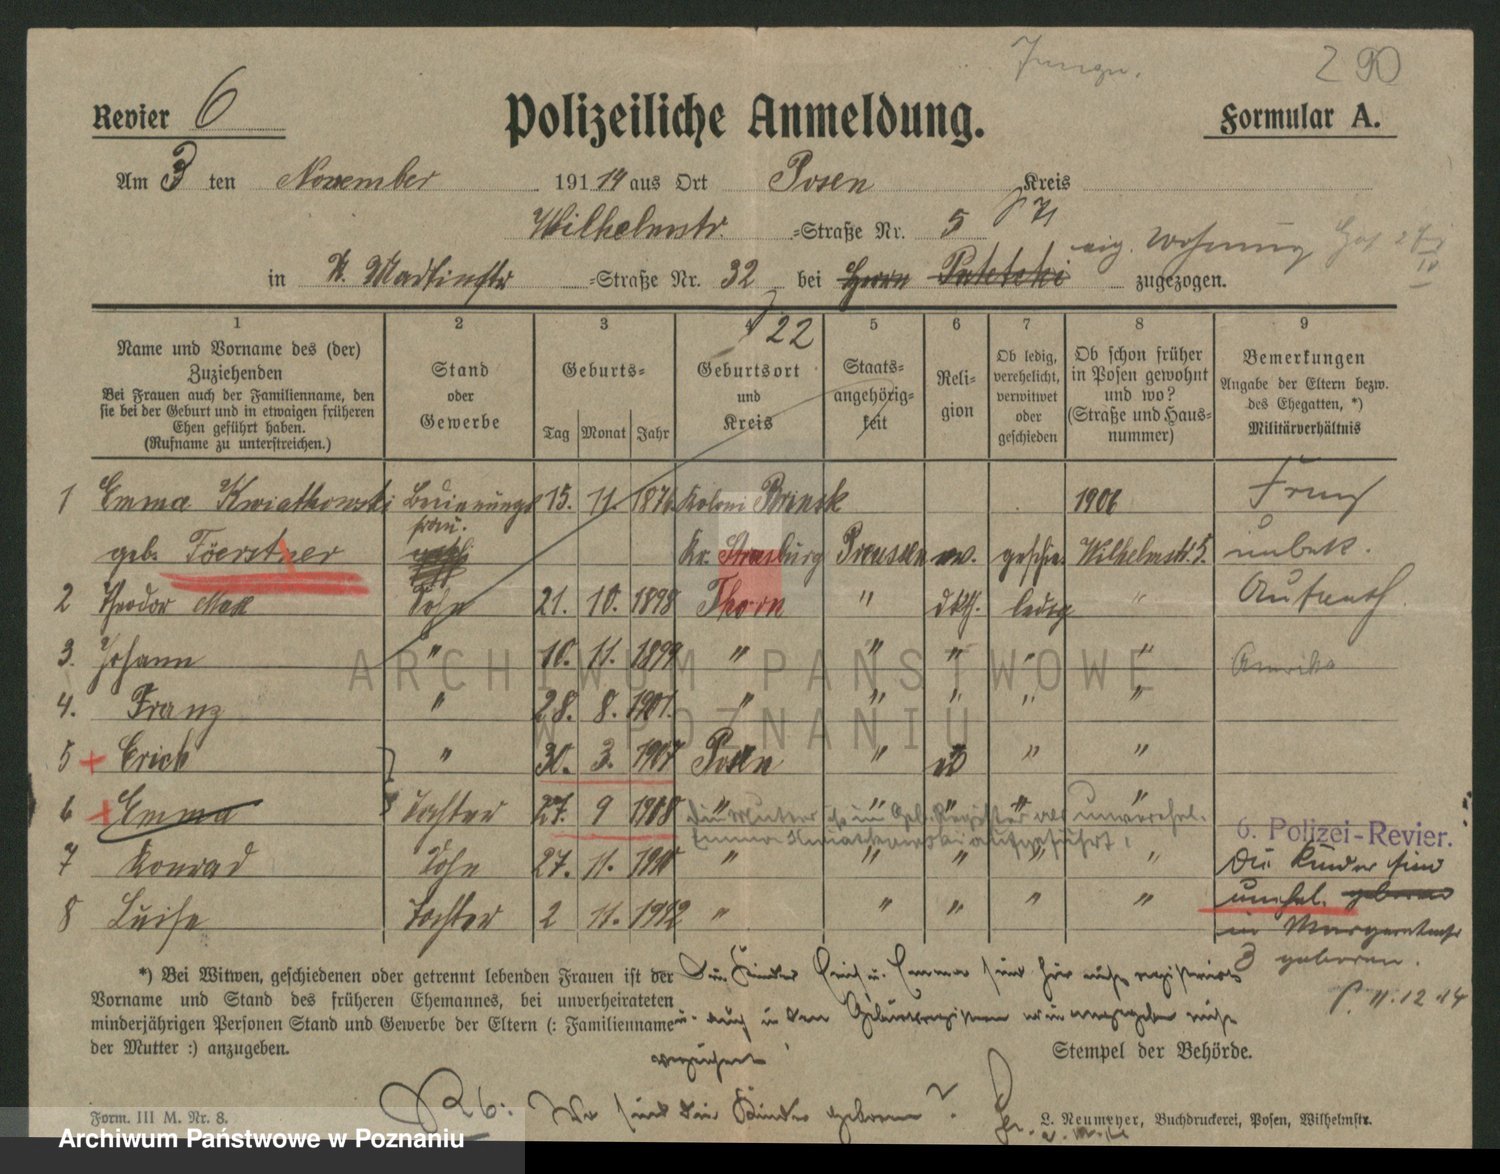 290
Revier 6
Polizeiliche Anmeldung.
Formular A.
Am 3 ten November 191 14 aus Ort Posen Kreis
Wilhelmstr. =Straße Nr. 5
eig. Wohnung
in St. Martinstr =Straße Nr. 32 bei Herrn zugezogen.
22
1 2 3 4 5 6 7 8 9
Name und Vorname des (der)
Zuziehenden
Bei Frauen auch der Familienname, den
sie bei der Geburt und in etwaigen früheren
Ehen geführt haben.
(Rufname zu unterstreichen.)
Stand
oder
Gewerbe
Geburts=
Tag Monat Jahr
Geburtsort
und
Kreis
Staats=
angehörig=
keit
Reli=
gion
Ob ledig,
verehelicht,
verwitwet
oder
geschieden
Ob schon früher
in Posen gewohnt
und wo?
(Straße und Haus=
nummer)
Bemerkungen
Angabe der Eltern bezw.
des Ehegatten, *)
Militärverhältnis
1 Emma Kwiatkowski Bedienungs 15. 11. 1876 Koloni Brinsk 1906 Franz
frau.
geb. Föerstner Kr. Strasburg Preussen ev. geschie. Wilhelmstr. 5. unbek.
2 Theodor Max Sohn 21. 10. 1898 Thorn " dkth. ledig " Aufenth.
3. Johann " 10. 11. 1899 " " " " " Amerika
4. Franz " 28. 8. 1901. " " " " "
5 + Erich " 30. 3. 1907 Posen " " "
6 + Emma Tochter 27. 9 1908 " " " " "
die Mutter ist im Register als unverehel.
Emma Kwiatkowski aufgeführt.
6. Polizei-Revier.
7 Konrad Sohn 27. 11. 1910 " " " " "
Die Kinder sind
8 Luise Tochter 2 11. 1912 " " " " "
unehel. geboren
in Margaretenstr
3 geboren.
11. 12 14
*) Bei Witwen, geschiedenen oder getrennt lebenden Frauen ist der
Vorname und Stand des früheren Ehemannes, bei unverheirateten
minderjährigen Personen Stand und Gewerbe der Eltern (: Familienname
der Mutter :) anzugeben.
Die Kinder Erich u. Emma sind hier nicht registriert
u. auch in den Geburtsregistern wie angegeben nicht
verzeichnet
Stempel der Behörde.
R 6: Wo sind die Kinder geboren?
Form. III M. Nr. 8.
L. Neumeyer, Buchdruckerei, Posen, Wilhelmstr.
ARCHIWUM PAŃSTWOWE
W POZNANIU
Archiwum Państwowe w Poznaniu